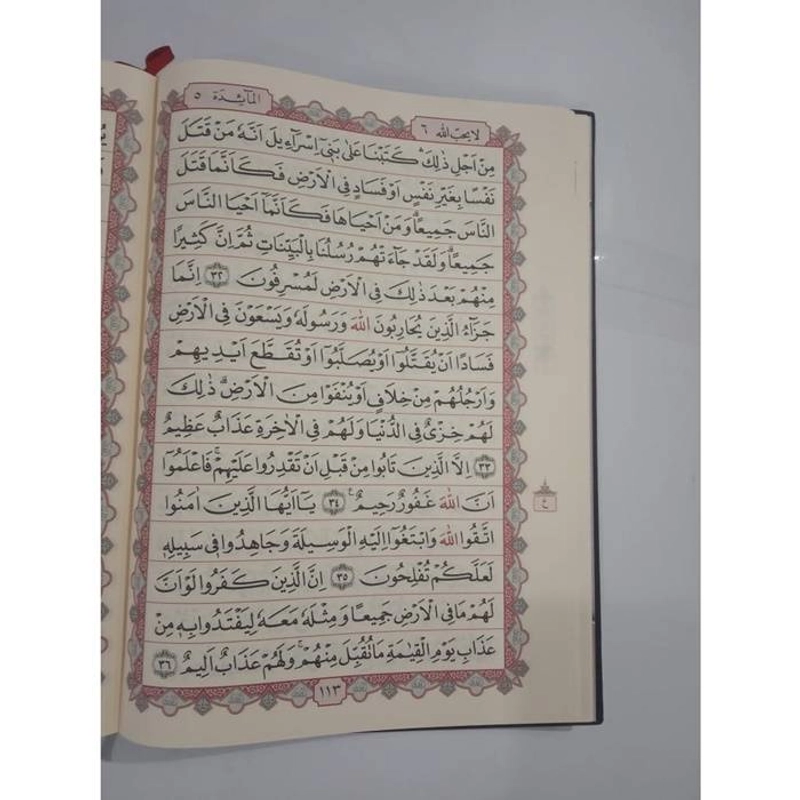 المآئدة ٥
لا يحب الله ٦
مِنْ اَجْلِ ذٰلِكَ كَتَبْنَا عَلٰى بَنٖى اِسْرَآءٖيلَ اَنَّهُ مَنْ قَتَلَ
نَفْسًا بِغَيْرِ نَفْسٍ اَوْ فَسَادٍ فِى الْاَرْضِ فَكَاَنَّمَا قَتَلَ
النَّاسَ جَمٖيعًا وَمَنْ اَحْيَاهَا فَكَاَنَّمَٓا اَحْيَا النَّاسَ
جَمٖيعًا وَلَقَدْ جَٓاءَتْهُمْ رُسُلُنَا بِالْبَيِّنَاتِ ثُمَّ اِنَّ كَثٖيرًا
مِنْهُمْ بَعْدَ ذٰلِكَ فِى الْاَرْضِ لَمُسْرِفُونَ ٣٢ اِنَّمَا
جَزٰٓؤُا الَّذٖينَ يُحَارِبُونَ اللّٰهَ وَرَسُولَهُ وَيَسْعَوْنَ فِى الْاَرْضِ
فَسَادًا اَنْ يُقَتَّلُٓوا اَوْ يُصَلَّبُٓوا اَوْ تُقَطَّعَ اَيْدٖيهِمْ
وَاَرْجُلُهُمْ مِنْ خِلَافٍ اَوْ يُنْفَوْا مِنَ الْاَرْضِ ذٰلِكَ
لَهُمْ خِزْىٌ فِى الدُّنْيَا وَلَهُمْ فِى الْاٰخِرَةِ عَذَابٌ عَظٖيمٌ
٣٣ اِلَّا الَّذٖينَ تَابُوا مِنْ قَبْلِ اَنْ تَقْدِرُوا عَلَيْهِمْ فَاعْلَمُٓوا
اَنَّ اللّٰهَ غَفُورٌ رَحٖيمٌ ٣٤ يَٓا اَيُّهَا الَّذٖينَ اٰمَنُوا
اتَّقُوا اللّٰهَ وَابْتَغُٓوا اِلَيْهِ الْوَسٖيلَةَ وَجَاهِدُوا فٖى سَبٖيلِهٖ
لَعَلَّكُمْ تُفْلِحُونَ ٣٥ اِنَّ الَّذٖينَ كَفَرُوا لَوْ اَنَّ
لَهُمْ مَا فِى الْاَرْضِ جَمٖيعًا وَمِثْلَهُ مَعَهُ لِيَفْتَدُوا بِهٖ مِنْ
عَذَابِ يَوْمِ الْقِيٰمَةِ مَا تُقُبِّلَ مِنْهُمْ وَلَهُمْ عَذَابٌ اَلٖيمٌ ٣٦
١١٣